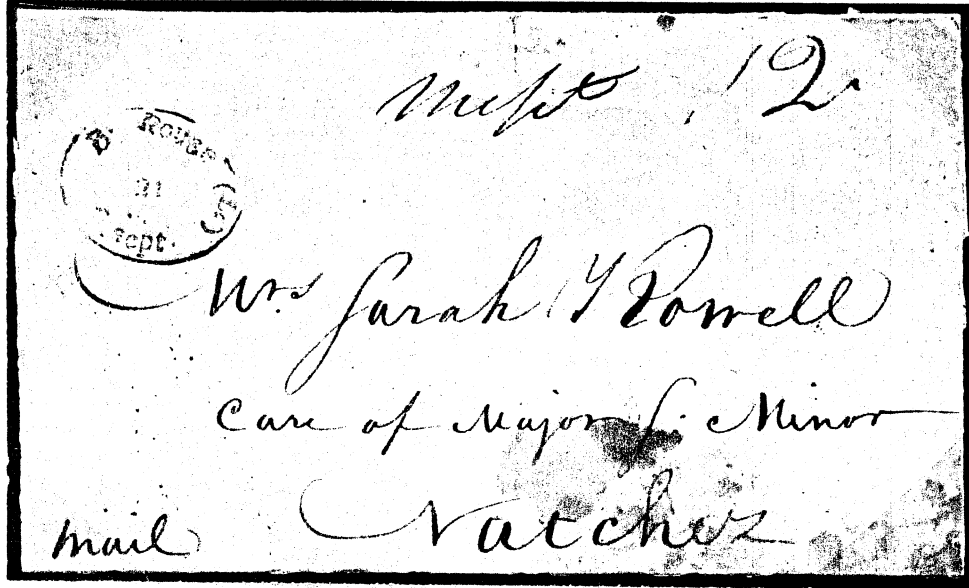 12
B. Rouge (L)
Sept.
Mrs Sarah Y Powell
Care of Major S. Minor
Natchez
mail